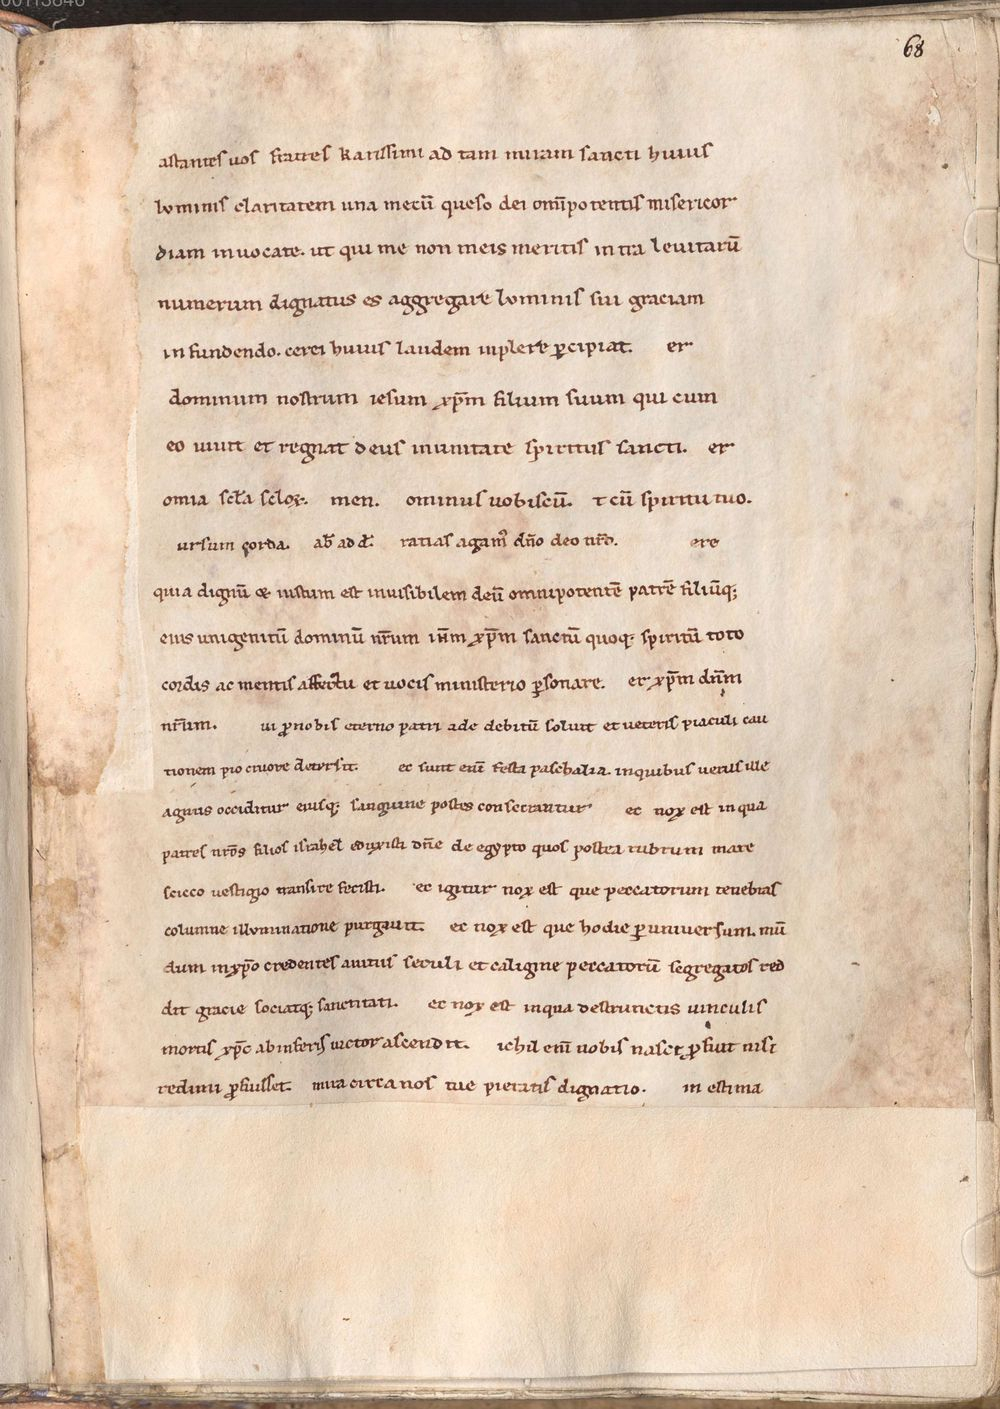 68
astantes uos fratres karissimi ad tam miram sancti huius
luminis claritatem una mecū queso dei om̅ipotentis misericor
diam inuocate. ut qui me non meis meritis intra leuitarū
numerum dignatus es aggregare luminis sui graciam
infundendo. cerei huius laudem inplere ꝑcipiat. er
dominum nostrum iesum xp̄m filium suum qui cum
eo uiuit et regnat deus inunitate spiritus sancti. er
omia scl̄a scl̄oꝝ. men. ominus uobiscū. t cū spiritu tuo.
ursum corda. ab̄ ad d̄. ratias agam⁹ dn̄o deo nr̄o. ere
quia dignū & iustum est inuisibilem deū omnipotentē patrē filiūq;
eius unigenitū dominū nr̄um ih̄m xp̄m sanctū quoq; spiritū toto
cordis ac mentis affectu et uocis ministerio ꝑsonare. er xp̄m dn̄m
nr̄um. ui ꝓ nobis eterno patri ade debitū soluit et ueteris piaculi cau
tionem pio cruore detersit. ec sunt enī festa paschalia. inquibus uerus ille
agnus occiditur eiusq; sanguine postes consecrantur ec nox est inqua
patres nr̄os filios israhel̄ eduxisti dn̄e de egypto quos postea rubrum mare
sicco uestigio transire fecisti. ec igitur nox est que peccatorum tenebras
columne illuminatione purgauit. ec nox est que hodie ꝑ uniuersum. mū
dum inxp̄o credentes auitus seculi et caligine peccatorū segregatos red
dit gracie sociatq; sanctitati. ec nox est inqua destructis uinculis
mortis xp̄c abinferis uictor ascendit. ichil enī nobis nasci ꝓfuit nisi
redimi ꝓfuisset. mira circa nos tue pietatis dignatio. in estima